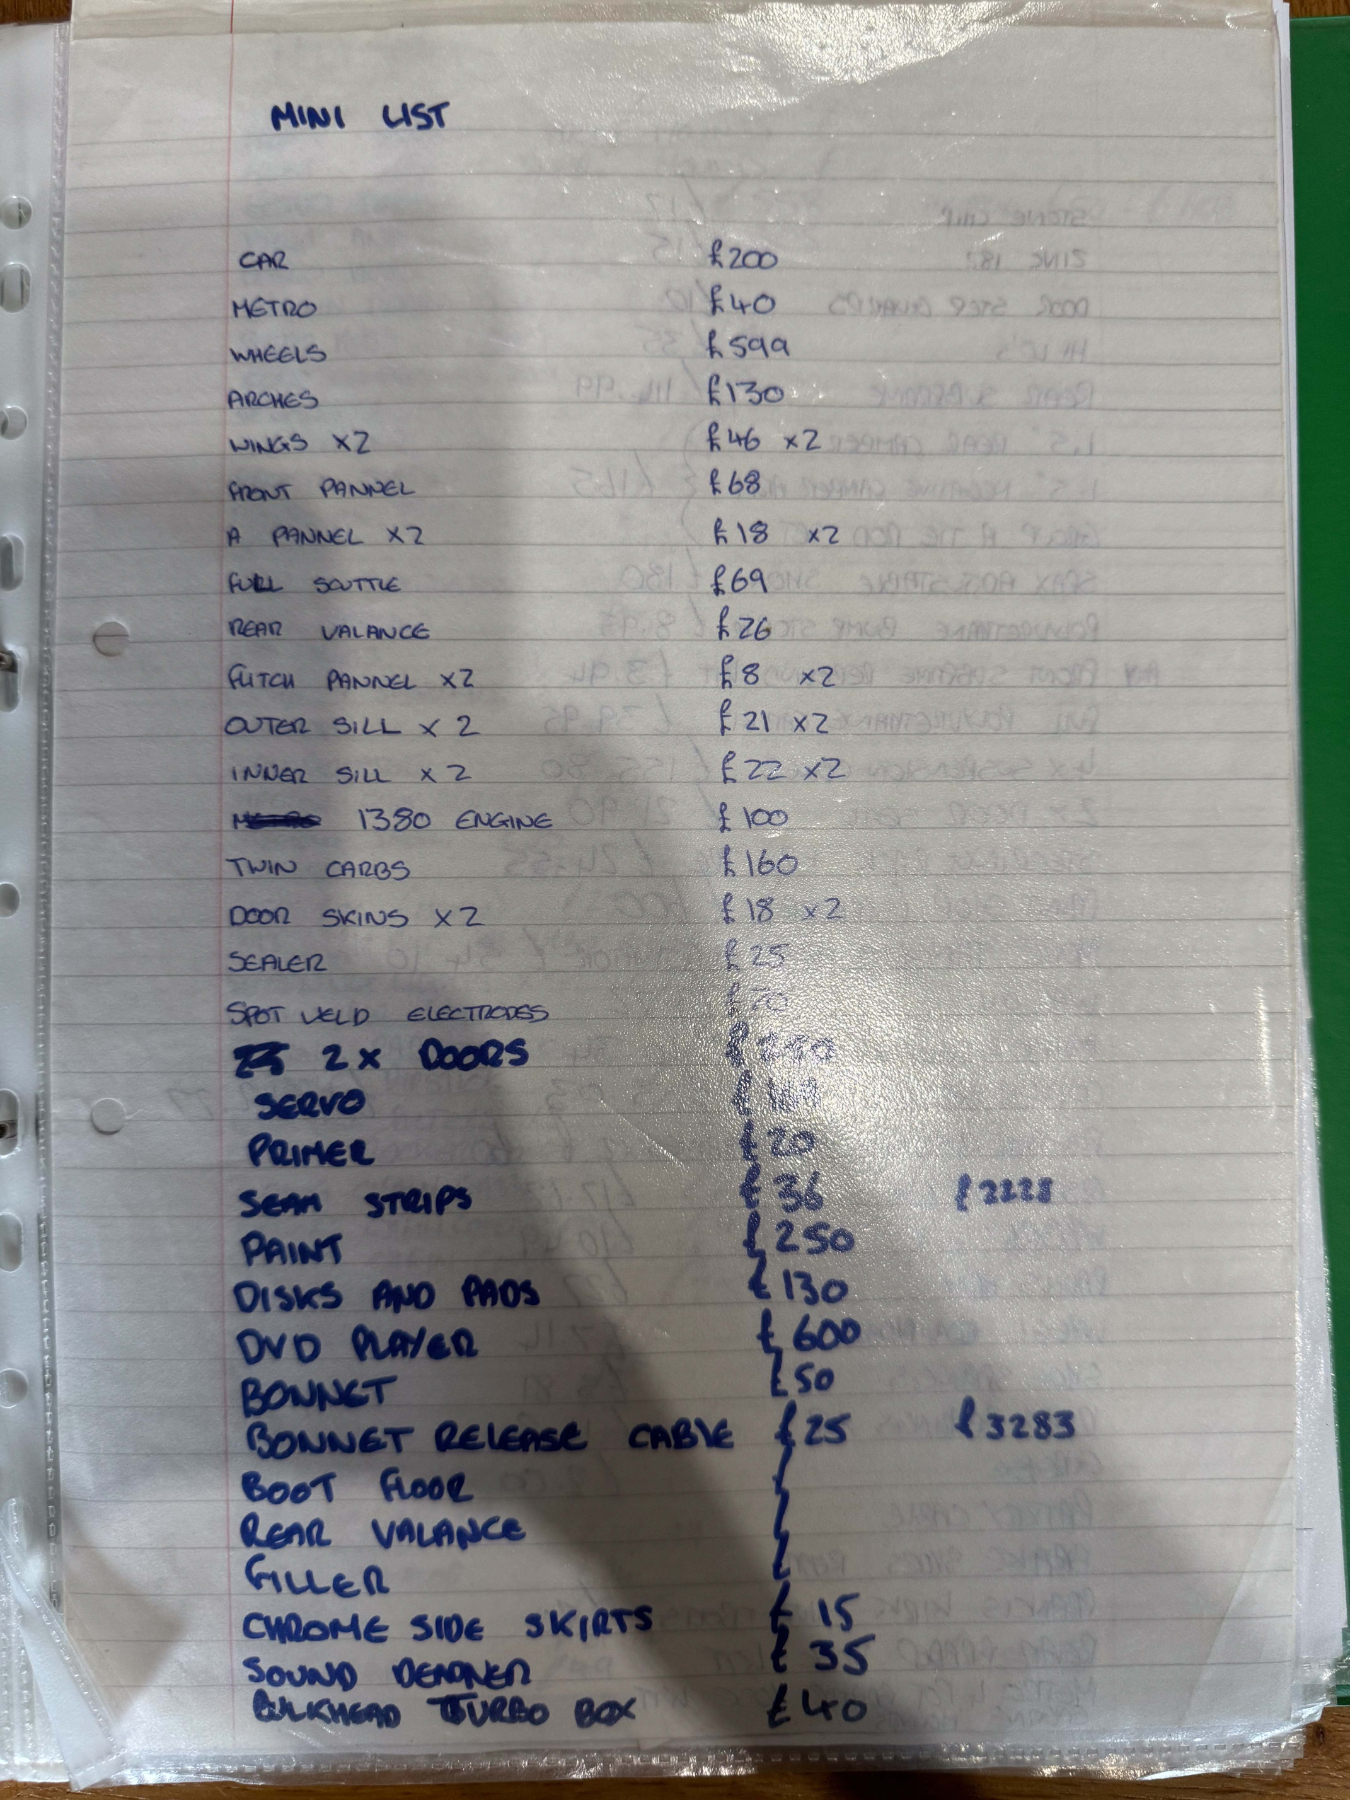 MINI LIST
CAR £200
METRO £40
WHEELS £599
ARCHES £130
WINGS x2 £46 x2
FRONT PANNEL £68
A PANNEL x2 £18 x2
FULL SCUTTLE £69
REAR VALANCE £26
FLITCH PANNEL x2 £8 x2
OUTER SILL x 2 £21 x2
INNER SILL x 2 £22 x2
1380 ENGINE £100
TWIN CARBS £160
DOOR SKINS x2 £18 x2
SEALER £25
SPOT WELD ELECTRODES £20
2 x DOORS
SERVO
PRIMER £20
SEAM STRIPS £36 £2228
PAINT £250
DISKS AND PADS £130
DVD PLAYER £600
BONNET £50
BONNET RELEASE CABLE £25 £3283
BOOT FLOOR
REAR VALANCE
FILLER
CHROME SIDE SKIRTS £15
SOUND DEADNER £35
BULKHEAD TURBO BOX £40